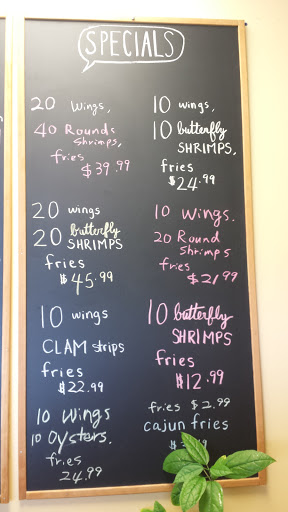 SPECIALS
20 Wings,
40 Rounds
Shrimps,
fries
$39.99
20 wings
20 butterfly
SHRIMPS
fries
$45.99
10 wings
CLAM strips
fries
$22.99
10 Wings
10 Oysters.
fries
24.99
10 wings,
10 butterfly
SHRIMPS,
fries
$24.99
10 Wings.
20 Round
Shrimps
fries
$21.99
10 butterfly
SHRIMPS
fries
$12.99
fries $2.99
cajun fries